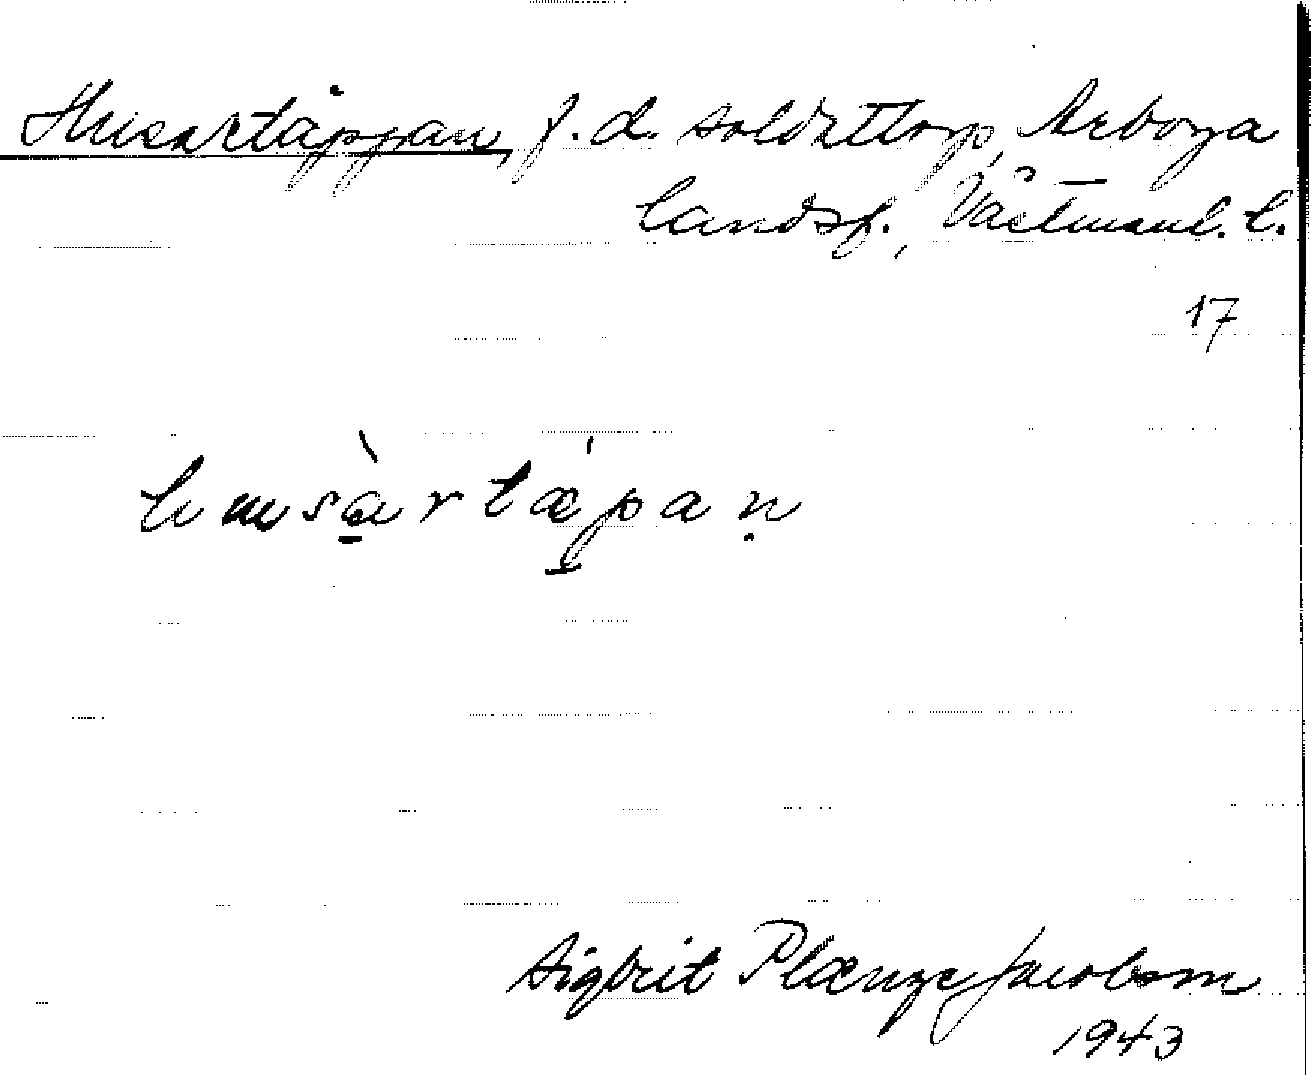 Husartäppan, f.d. soldattorp, Arboga
landsf., Västmanl. l.
17
husàrtǽpaṇ
Sigbrit Plænge Jacobson
1943